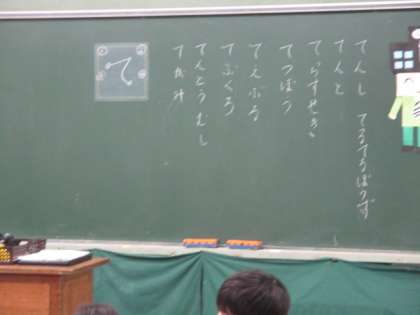 てんし てるてるぼうず
てんと
てらすせき
てつぼう
てえぶる
てぶくろ
てんとうむし
てがみ
て